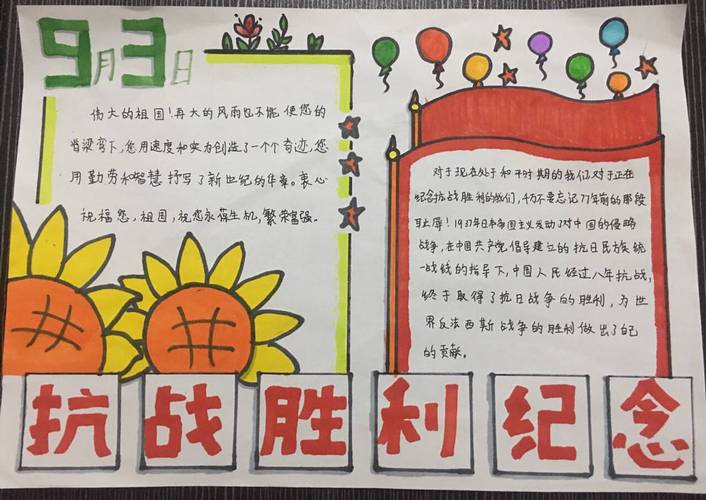 9月3日
伟大的祖国!再大的风雨也不能使您的
脊梁弯下,您用速度和实力创造了一个个奇迹,您
用勤劳和智慧抒写了新世纪的华章。衷心
祝福您,祖国,祝您永葆生机,繁荣富强。
对于现在处于和平时期的我们,对于正在
纪念抗战胜利的我们,千万不要忘记77年前的那段
耻辱!1937年日本帝国主义发动了对中国的侵略
战争,在中国共产党倡导建立的抗日民族统
一战线的指导下,中国人民经过八年抗战,
终于取得了抗日战争的胜利,为世
界反法西斯战争的胜利做出了自己
的贡献。
抗战胜利纪念